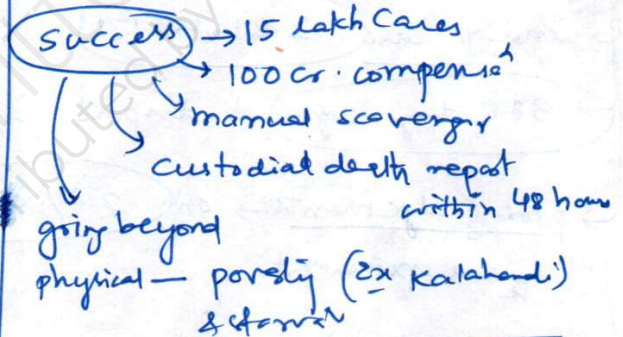 success → 15 lakh Cases
→ 100 cr. compensan
manual scavenger
custodial death report
within 48 hours
going beyond
physical — poverty (Ex Kalahandi)
& starvan